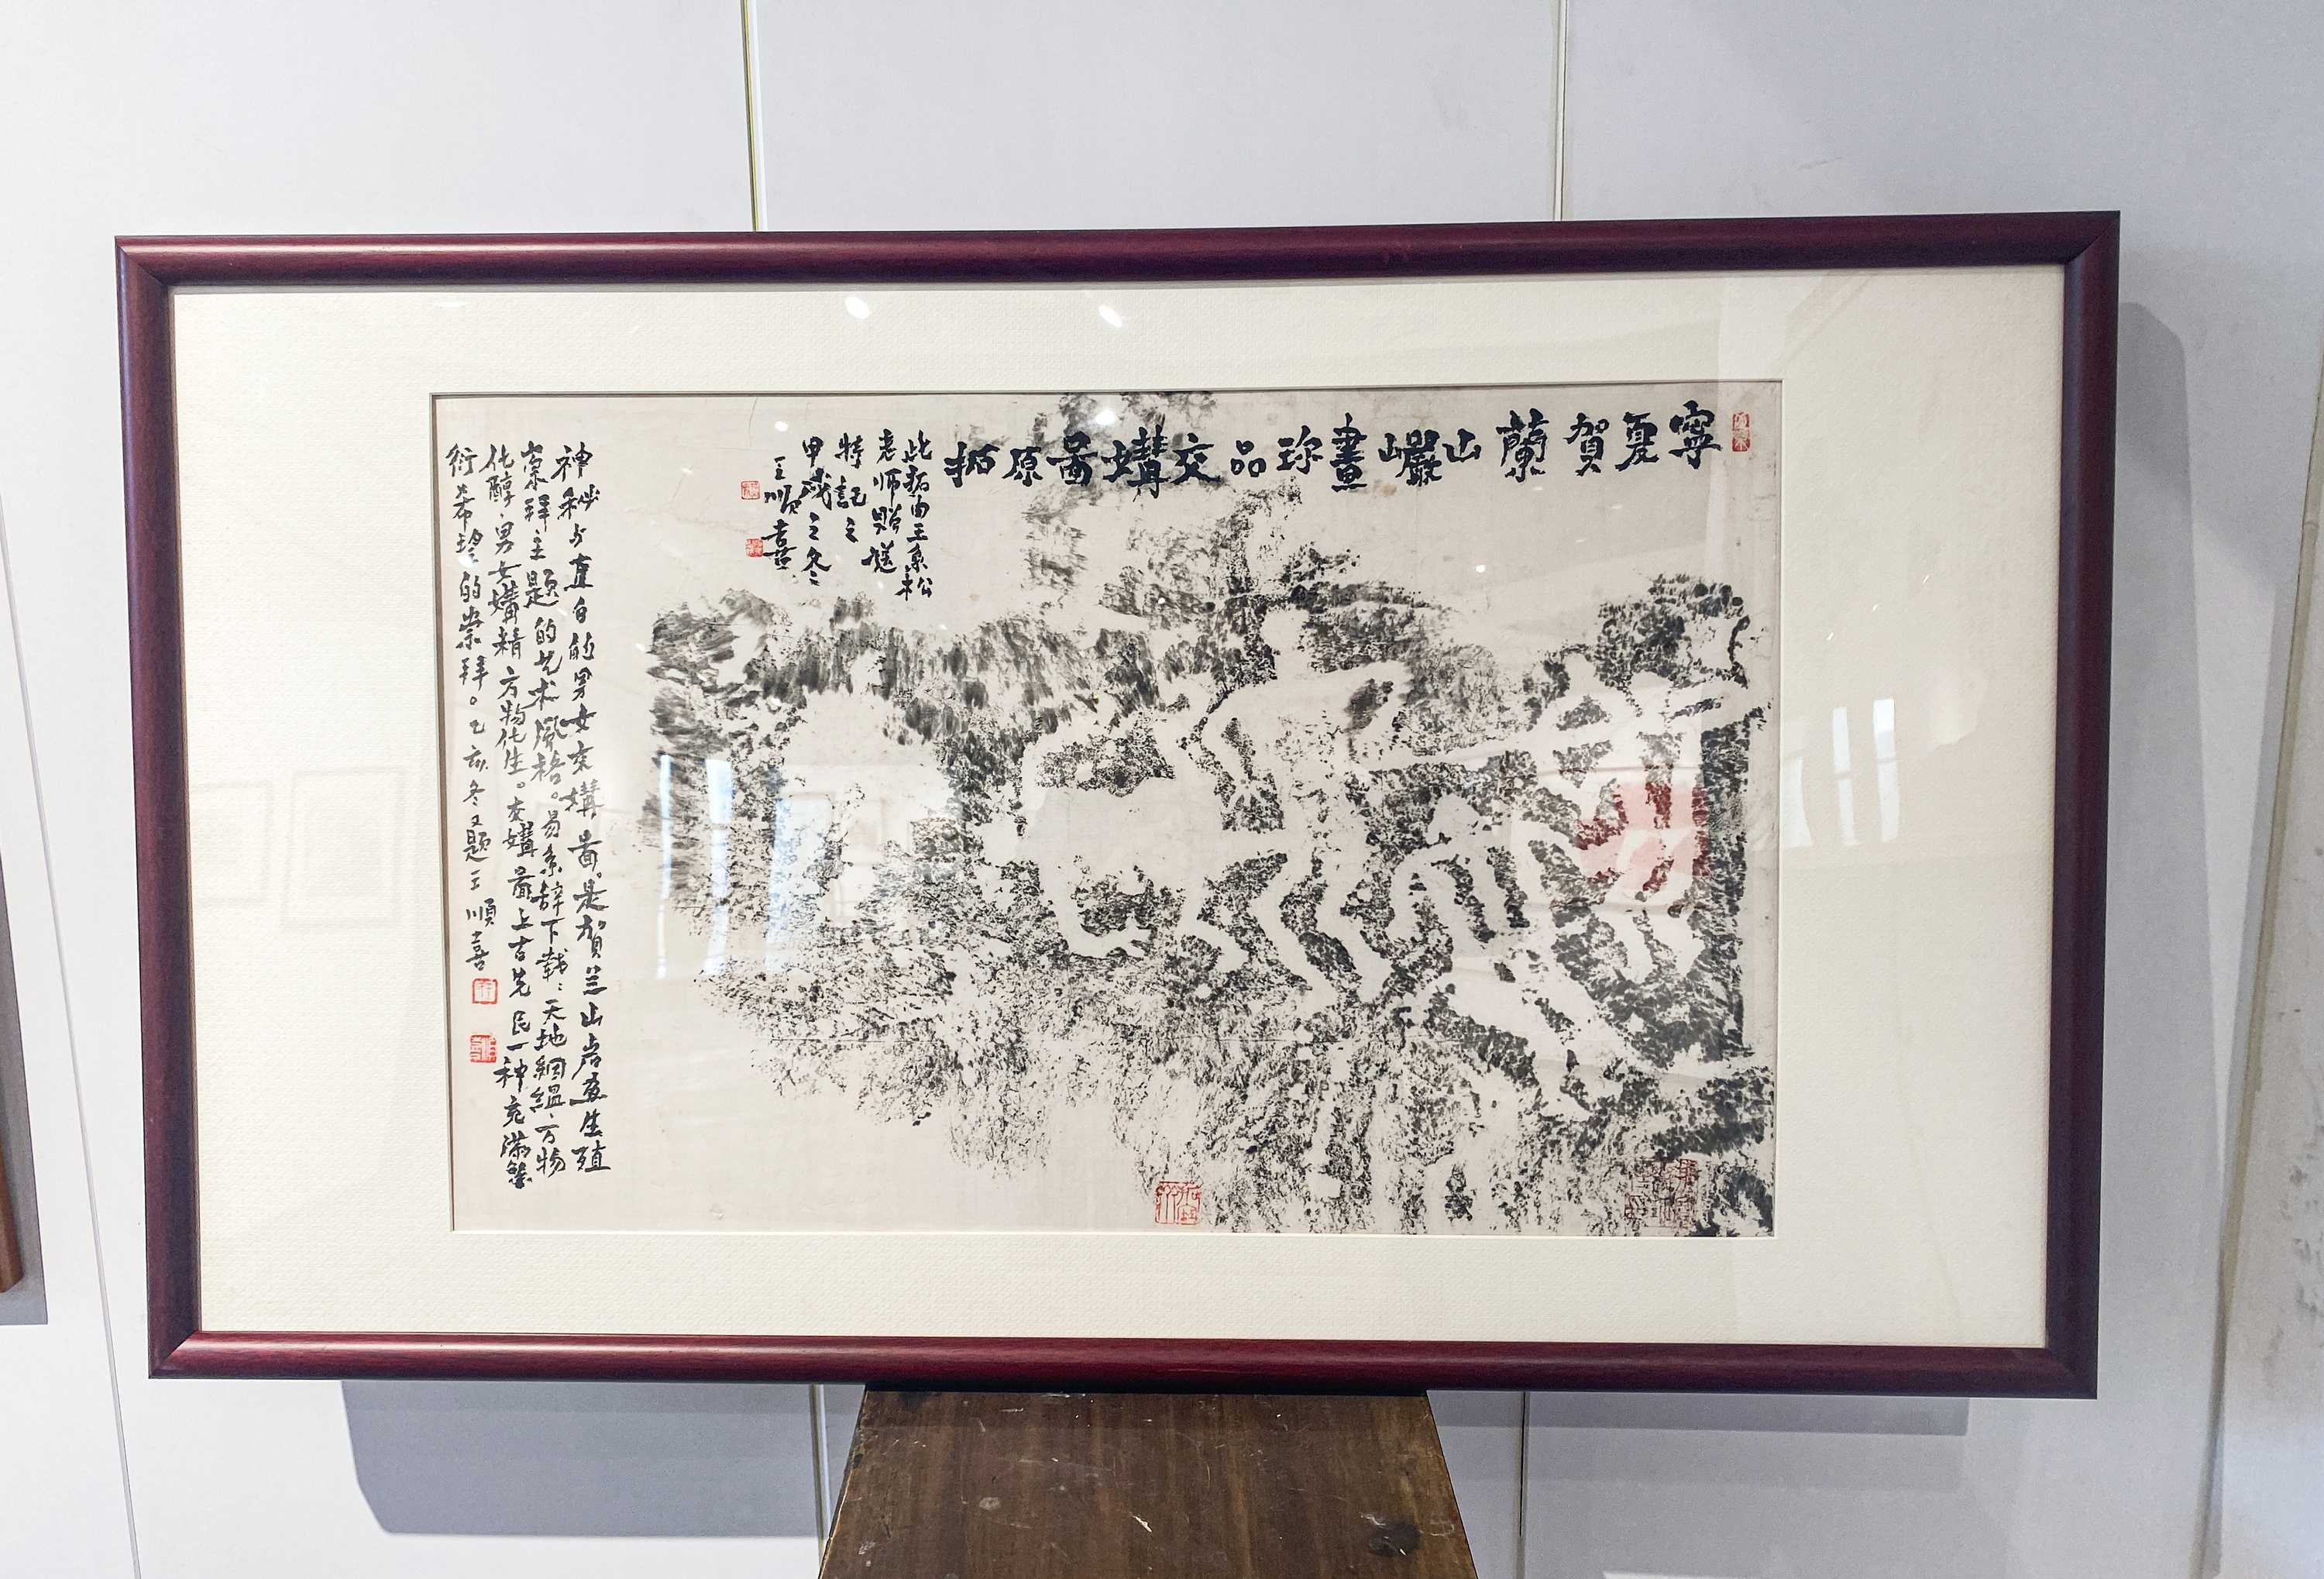 寧夏賀蘭山巖畫珎品交媾啚原拓
此拓由王系松
老师贈送
特記之
甲戌之冬
王順喜
神秘与直白的男女交媾啚是贺兰山岩画生殖
崇拜主题的艺术風格。易系辞下载：天地絪縕万物
化醇，男女媾精万物化生。交媾啚上古先民一种充满繁
衍希望的崇拜。乙亥冬又题王順喜